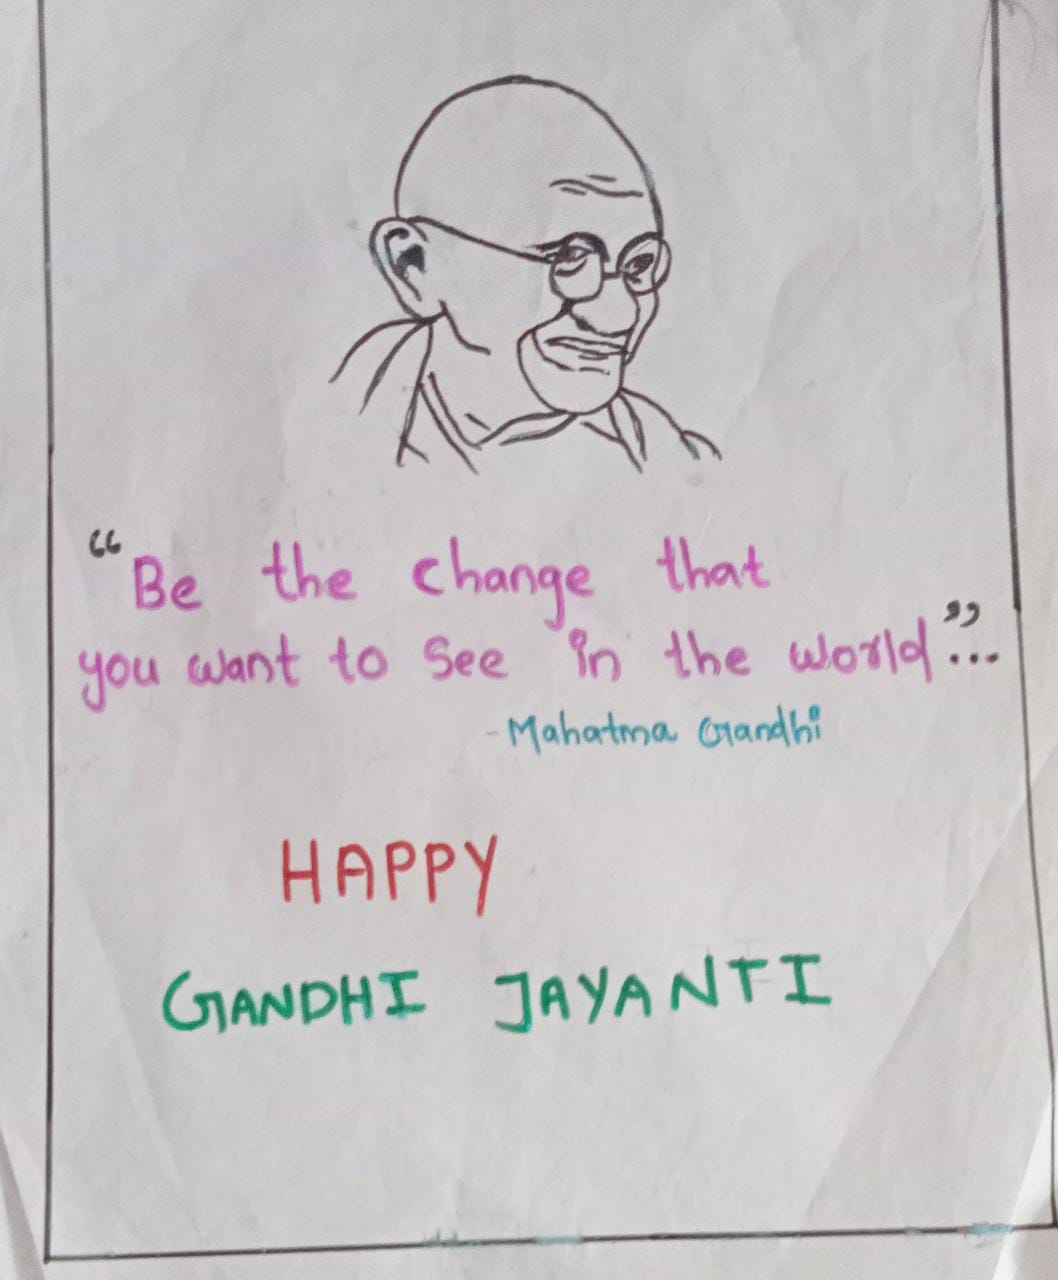 “Be the change that
you want to see in the world”...
- Mahatma Gandhi
HAPPY
GANDHI JAYANTI